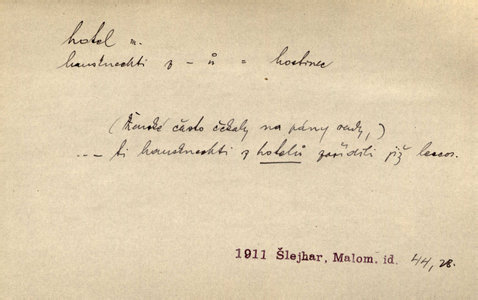 hotel m.
hausknechti z -ů = hostinec
(Ženské často čekaly na pány rady,)
... ti hausknechti z hotelů zařídili již leccos.
1911 Šlejhar, Malom. id. 44, 28.